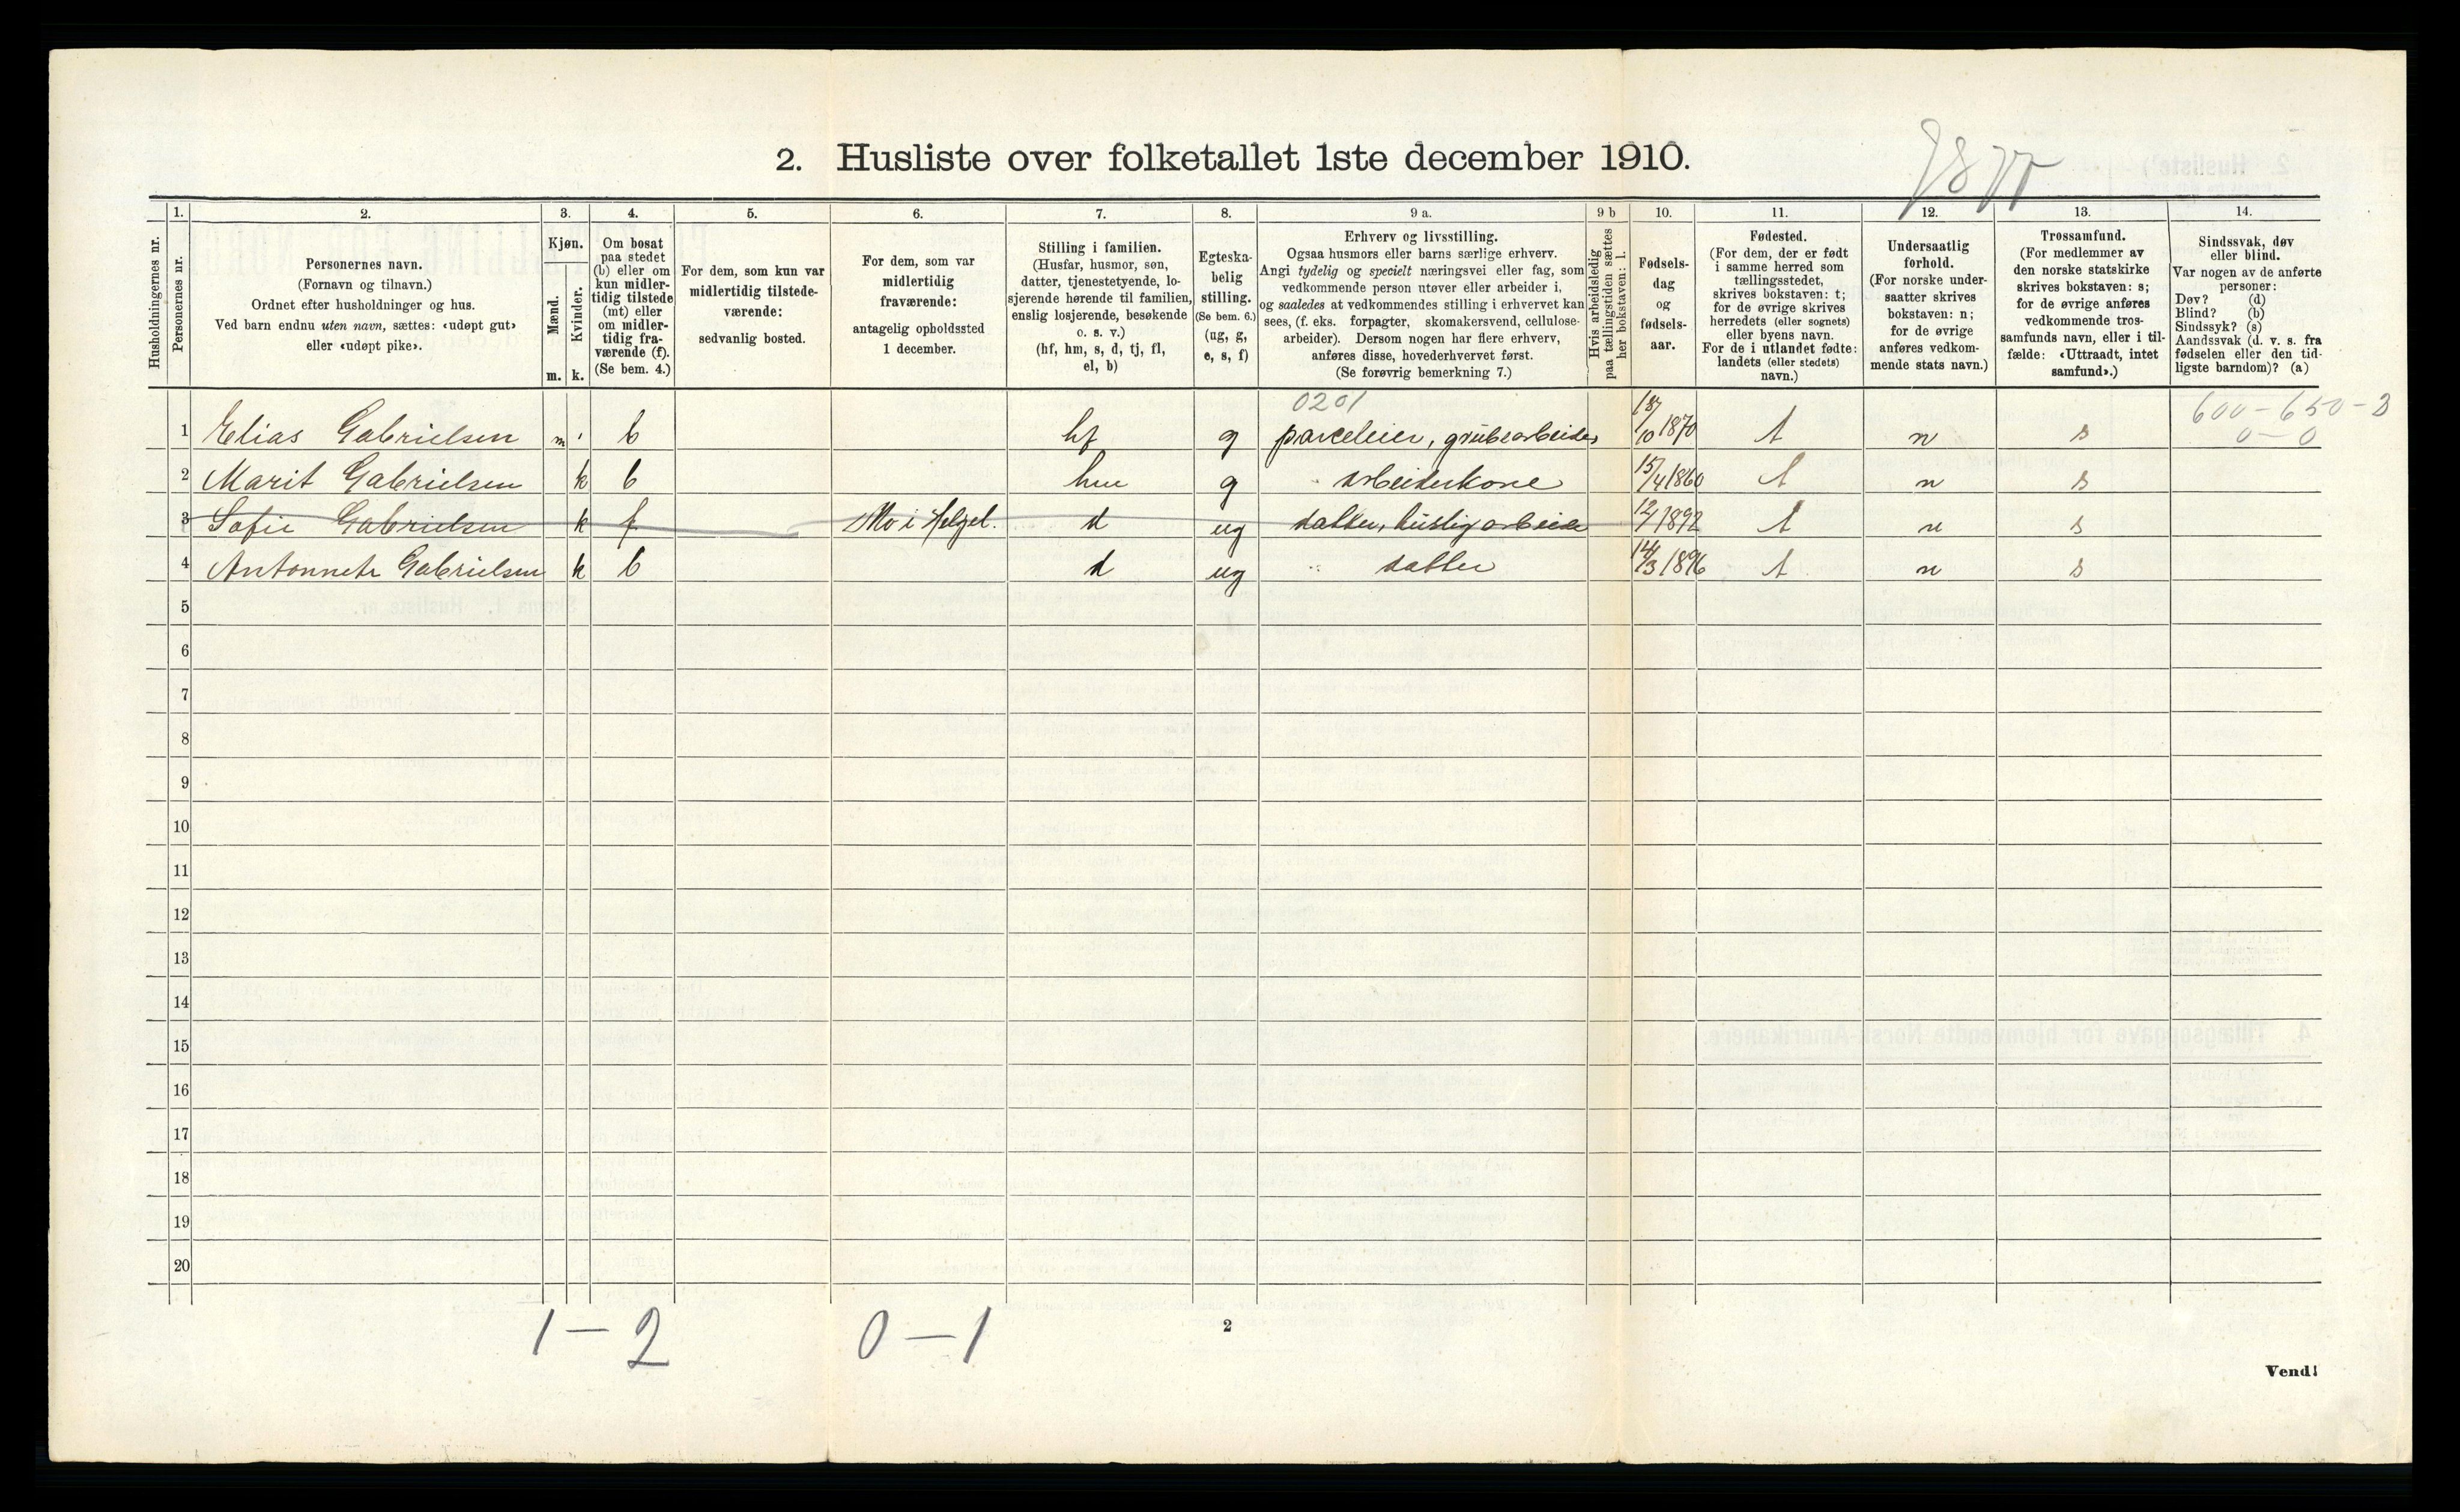 2. Husliste over folketallet 1ste december 1910.
1. 2. 3. 4. 5. 6. 7. 8. 9 a. 9 b 10. 11. 12. 13. 14.
Husholdningernes nr.
Personernes nr.
Personernes navn.
(Fornavn og tilnavn.)
Ordnet efter husholdninger og hus.
Ved barn endnu uten navn, sættes: «udøpt gut»
eller «udøpt pike».
Kjøn.
Mænd.
Kvinder.
m. k.
Om bosat
paa stedet
(b) eller om
kun midler-
tidig tilstede
(mt) eller
om midler-
tidig fra-
værende (f).
(Se bem. 4.)
For dem, som kun var
midlertidig tilstede-
værende:
sedvanlig bosted.
For dem, som var
midlertidig
fraværende:
antagelig opholdssted
1 december.
Stilling i familien.
(Husfar, husmor, søn,
datter, tjenestetyende, lo-
sjerende hørende til familien,
enslig losjerende, besøkende
o. s. v.)
(hf, hm, s, d, tj, fl,
el, b)
Egteska-
belig
stilling.
(Se bem. 6.)
(ug, g,
e, s, f)
Erhverv og livsstilling.
Ogsaa husmors eller barns særlige erhverv.
Angi tydelig og specielt næringsvei eller fag, som
vedkommende person utøver eller arbeider i,
og saaledes at vedkommendes stilling i erhvervet kan
sees, (f. eks. forpagter, skomakersvend, cellulose-
arbeider). Dersom nogen har flere erhverv,
anføres disse, hovederhvervet først.
(Se forøvrig bemerkning 7.)
Hvis arbeidsledig
paa tællingstiden sættes
her bokstaven: l.
Fødsels-
dag
og
fødsels-
aar.
Fødested.
(For dem, der er født
i samme herred som
tællingsstedet,
skrives bokstaven: t;
for de øvrige skrives
herredets (eller sognets)
eller byens navn.
For de i utlandet fødte:
landets (eller stedets)
navn.)
Undersaatlig
forhold.
(For norske under-
saatter skrives
bokstaven: n;
for de øvrige
anføres vedkom-
mende stats navn.)
Trossamfund.
(For medlemmer av
den norske statskirke
skrives bokstaven: s;
for de øvrige anføres
vedkommende tros-
samfunds navn, eller i til-
fælde: «Uttraadt, intet
samfund».)
Sindssvak, døv
eller blind.
Var nogen av de anførte
personer:
Døv? (d)
Blind? (b)
Sindssyk? (s)
Aandssvak (d. v. s. fra
fødselen eller den tid-
ligste barndom)? (a)
0201
600-650-3
0-0
1 Elias Gabrielsen m b hf g parceleier, grubearbeider 18/10 1870 t n s
2 Marit Gabrielsen k b hm g arbeiderkone 15/4 1860 t n s
3 Sofie Gabrielsen k f Mo i Helgel. d ug datter, huslig arbeide 1892 t n s
4 Antonnete Gabrielsen k b d ug datter 14/3 1896 t n s
5
6
7
8
9
10
11
12
13
14
15
16
17
18
19
20
1-2 0-1
2
Vend!